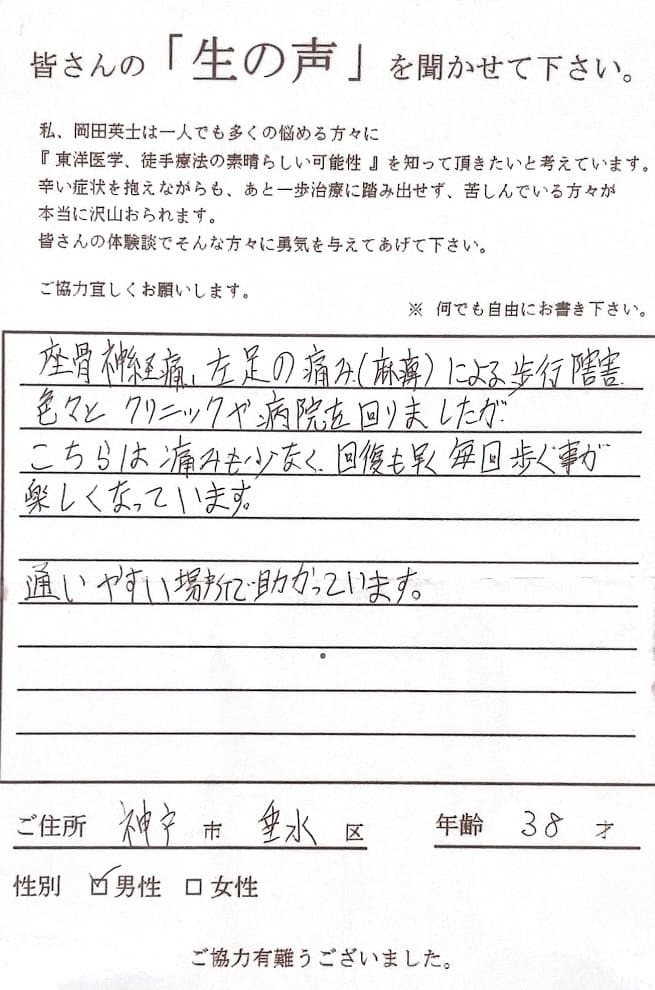 皆さんの「生の声」を聞かせて下さい。
私、岡田英士は一人でも多くの悩める方々に
『 東洋医学、徒手療法の素晴らしい可能性 』を知って頂きたいと考えています。
辛い症状を抱えながらも、あと一歩治療に踏み出せず、苦しんでいる方々が
本当に沢山おられます。
皆さんの体験談でそんな方々に勇気を与えてあげて下さい。
ご協力宜しくお願いします。
※ 何でも自由にお書き下さい。
座骨神経痛、左足の痛み(麻痺)による歩行障害
色々と クリニックや病院を回りましたが
こちらは痛みも少なく、回復も早く毎回歩く事が
楽しくなっています。
通いやすい場所で助かっています。
ご住所 神戸 市 垂水 区 年齢 38 才
性別 ☑男性 □女性
ご協力有難うございました。